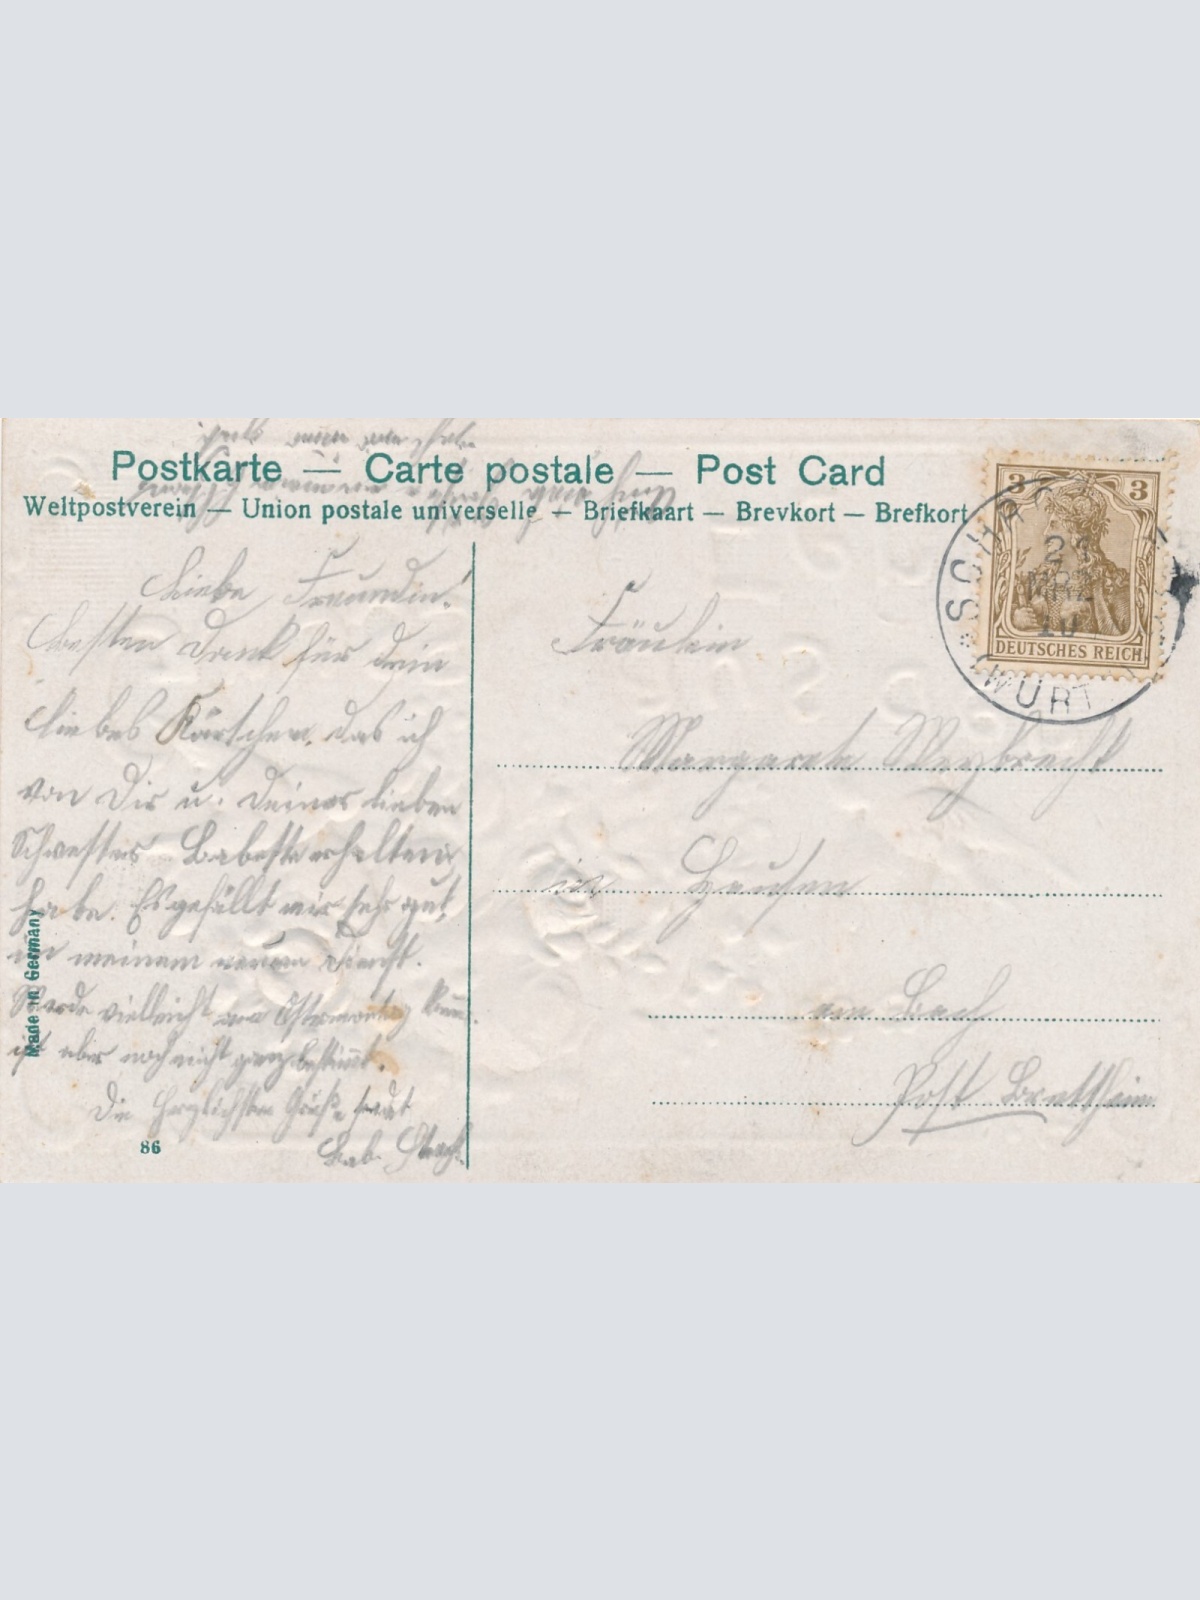 Postkarte — Carte postale — Post Card
Weltpostverein — Union postale universelle — Briefkaart — Brevkort — Brefkort
3 3
DEUTSCHES REICH
SCHRO
MRZ
10
(WÜRT
Liebe Freundin!
besten Dank für dein
liebes Kärtchen, das ich
von Dir u. Deiner lieben
Schwester Babette erhalten
habe. Es gefällt mir sehr gut,
in meinem neuen Dienst.
Werde vielleicht am Ostermontag komm.
ist aber noch nicht ganz bestimmt.
Die herzlichsten Grüße sendet
Bab.
Fräulein
Margareta Weybrecht
in Hausen
am Bach
Post Brettheim
Made in Germany
86